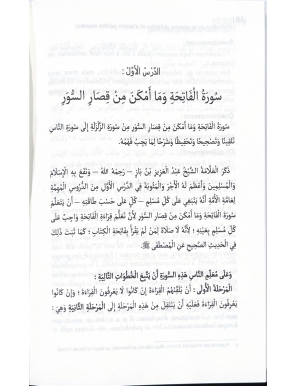 الدَّرْسُ الْأَوَّلُ :
سُورَةُ الْفَاتِحَةِ وَمَا أَمْكَنَ مِنْ قِصَارِ السُّوَرِ
سُورَةُ الْفَاتِحَةِ وَمَا أَمْكَنَ مِنْ قِصَارِ السُّوَرِ مِنْ سُورَةِ الزَّلْزَلَةِ إِلَى سُورَةِ النَّاسِ
تَلْقِينًا وَتَصْحِيحًا وَتَحْفِيظًا وَشَرْحًا لِمَا يَجِبُ فَهْمُهُ.
ذَكَرَ الْعَلَّامَةُ الشَّيْخُ عَبْدُ الْعَزِيزِ بْنُ بَازٍ – رَحِمَهُ اللهُ – وَنَفَعَ بِهِ الْإِسْلَامَ
وَالْمُسْلِمِينَ وَأَعْظَمَ لَهُ الْأَجْرَ وَالْمَثُوبَةَ فِي الدَّرْسِ الْأَوَّلِ مِنَ الدُّرُوسِ الْمُهِمَّةِ
لِعَامَّةِ الْأُمَّةِ أَنَّهُ يَنْبَغِي عَلَى كُلِّ مُسْلِمٍ – كُلٌّ عَلَى حَسَبِ طَاقَتِهِ – أَنْ يَتَعَلَّمَ
سُورَةَ الْفَاتِحَةِ وَمَا أَمْكَنَ مِنْ قِصَارِ السُّوَرِ لِأَنَّ تَعَلُّمَ قِرَاءَةِ الْفَاتِحَةِ وَاجِبٌ عَلَى
كُلِّ مُسْلِمٍ بِعَيْنِهِ ؛ لِأَنَّهُ لَا صَلَاةَ لِمَنْ لَمْ يَقْرَأْ بِفَاتِحَةِ الْكِتَابِ ؛ كَمَا ثَبَتَ ذَلِكَ
فِي الْحَدِيثِ الصَّحِيحِ عَنِ الْمُصْطَفَى ﷺ.
وَعَلَى مُعَلِّمِ النَّاسِ هَذِهِ السُّورَةَ أَنْ يَتَّبِعَ الْخُطُوَاتِ التَّالِيَةَ :
الْمَرْحَلَةُ الْأُولَى : أَنْ يُلَقِّنَهُمُ الْقِرَاءَةَ إِنْ كَانُوا لَا يَعْرِفُونَ الْقِرَاءَةَ ؛ وَإِنْ كَانُوا
يَعْرِفُونَ الْقِرَاءَةَ فَعَلَيْهِ أَنْ يَنْتَقِلَ مِنْ هَذِهِ الْمَرْحَلَةِ إِلَى الْمَرْحَلَةِ التَّالِيَةِ وَهِيَ :